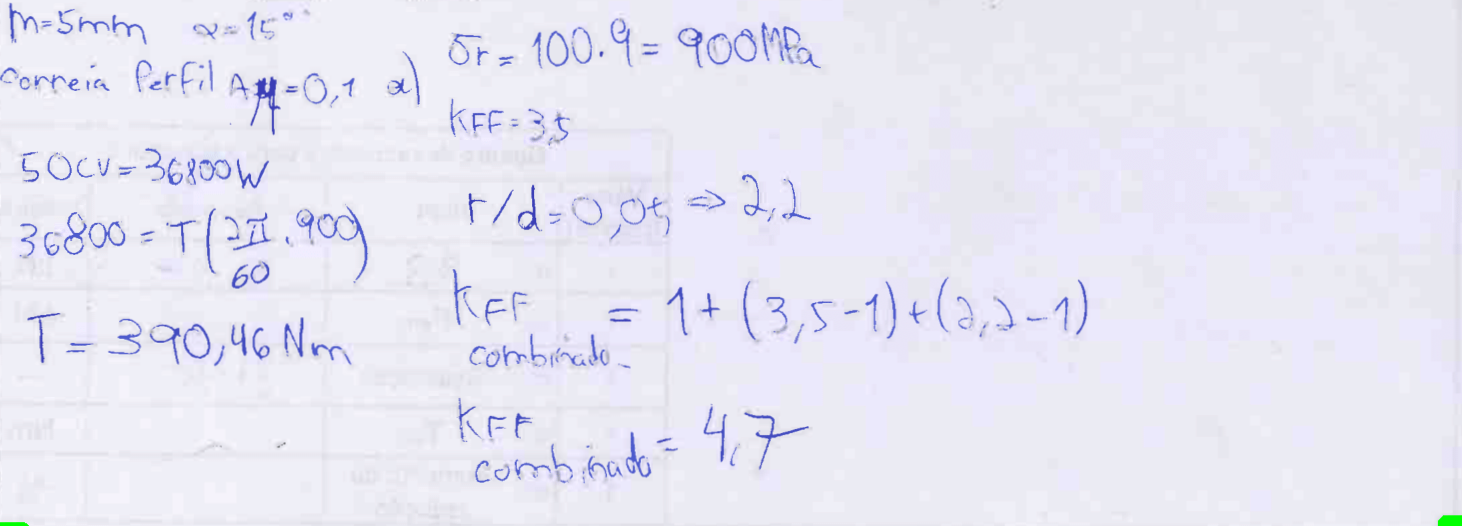 m=5mm α=15°
correia Perfil A μ=0,1 a)
50CV=36800W
36800=T(2π/60.900)
T=390,46 Nm
σr=100.9=900MPa
KFF=3,5
r/d=0,05 => 2,2
KFF combinado = 1+(3,5-1)+(2,2-1)
KFF combinado = 4,7